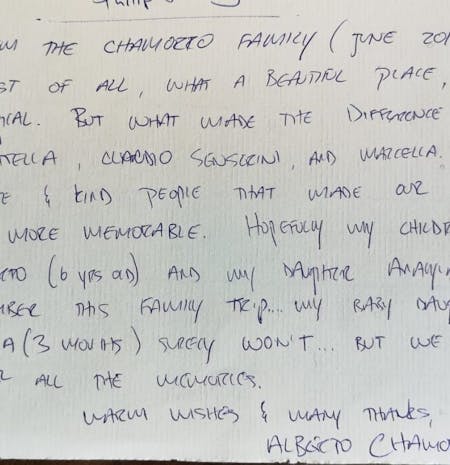 THE CHAMORRO FAMILY ( JUNE 201
ST OF ALL, WHAT A BEAUTIFUL PLACE,
ICAL. BUT WHAT MADE THE DIFFERENCE
TELLA, CLAUDIO SENSERINI, AND MARCELLA.
E & KIND PEOPLE THAT MADE OUR
MORE MEMORABLE. HOPEFULLY MY CHILDR
TO (6 YRS OLD) AND MY DAUGHTER
MBER THIS FAMILY TRIP.... MY BABY DAU
A (3 MONTHS) SURELY WON'T... BUT WE
ALL THE MEMORIES.
WARM WISHES & MANY THANKS,
ALBERTO CHAMO